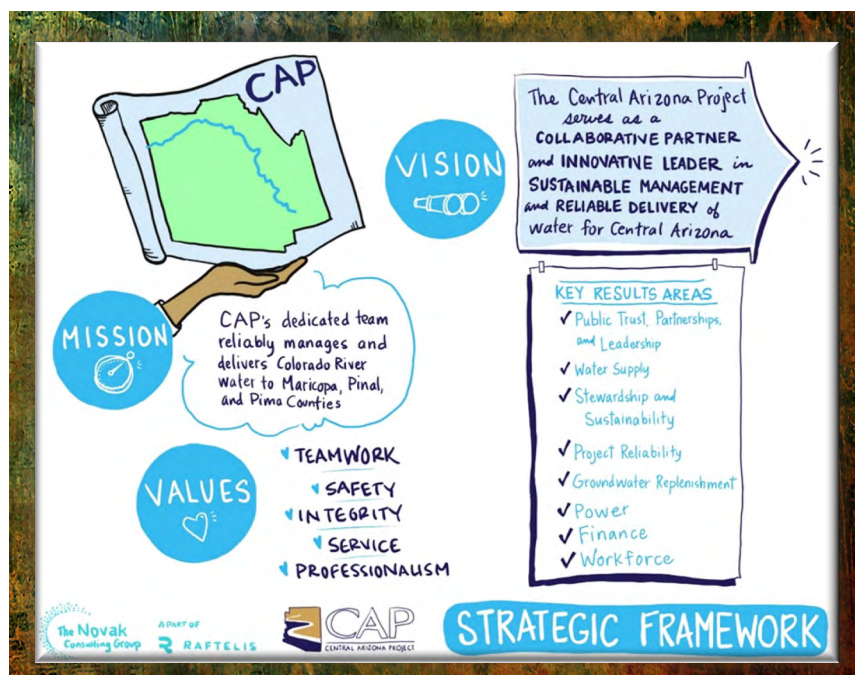 CAP
VISION
The Central Arizona Project
serves as a
COLLABORATIVE PARTNER
and INNOVATIVE LEADER in
SUSTAINABLE MANAGEMENT
and RELIABLE DELIVERY of
water for Central Arizona
MISSION
CAP's dedicated team
reliably manages and
delivers Colorado River
water to Maricopa, Pinal,
and Pima Counties
KEY RESULTS AREAS
✓ Public Trust, Partnerships,
and Leadership
✓ Water Supply
✓ Stewardship and
Sustainability
✓ Project Reliability
✓ Groundwater Replenishment
✓ Power
✓ Finance
✓ Workforce
VALUES
TEAMWORK
SAFETY
INTEGRITY
SERVICE
PROFESSIONALISM
The Novak
Consulting Group
A PART OF
RAFTELIS
CAP
CENTRAL ARIZONA PROJECT
STRATEGIC FRAMEWORK